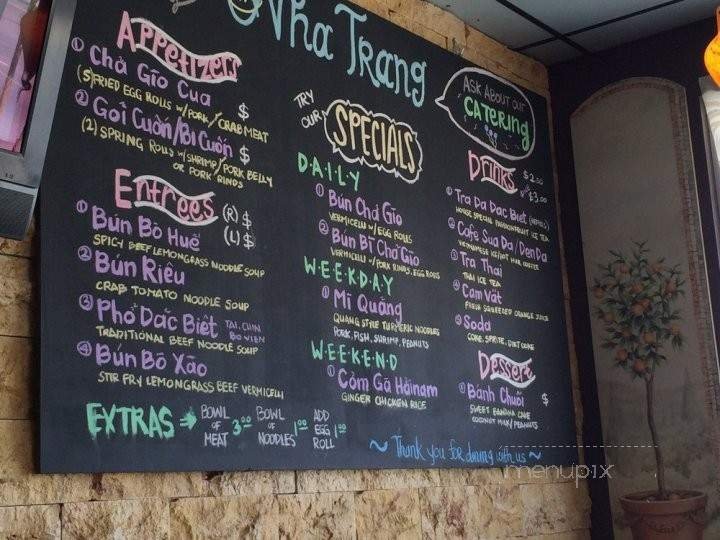 Nha Trang
Appetizers
① Chả Gīo Cua $
(5) FRIED EGG ROLLS w/ PORK / CRAB MEAT
② Goi Cuốn/Bì Cuốn $
(2) SPRING ROLLS w/ SHRIMP / PORK BELLY
OR PORK RINDS
Entrees (R) $
(L) $
① Bún Bò Huế
SPICY BEEF LEMONGRASS NOODLE SOUP
② Bún Riêu
CRAB TOMATO NOODLE SOUP
③ Phở Dăc Biêt TAI, CHIN
BO VIEN
TRADITIONAL BEEF NOODLE SOUP
④ Bún Bò Xào
STIR FRY LEMONGRASS BEEF VERMICELLI
EXTRAS → BOWL OF MEAT 3.00 BOWL OF NOODLES 1.00 ADD EGG ROLL 1.00
TRY OUR SPECIALS
DAILY
① Bún Chả Gīo
VERMICELLI w/ EGG ROLLS
② Bún Bì Chả Gīo
VERMICELLI w/ PORK RINDS, EGG ROLLS
WEEKDAY
① Mì Quảng
QUANG STYLE TURMERIC NOODLES
PORK, FISH, SHRIMP, PEANUTS
WEEKEND
① Cơm Gà Hǎinam
GINGER CHICKEN RICE
ASK ABOUT OUR
CATERING
Drinks $2.00
$3.00
① Tra Da Dac Biet
HOUSE SPECIAL PASSIONFRUIT ICE TEA
② Cafe Sua Da / Den Da
③ Tra Thai
THAI ICE TEA
④ Cam Vắt
FRESH SQUEEZED ORANGE JUICE
⑤ Soda
COKE, SPRITE, DIET COKE
Dessert
① Bánh Chuối $
SWEET BANANA CAKE
COCONUT MILK / PEANUTS
~ Thank you for dining with us ~
menupix